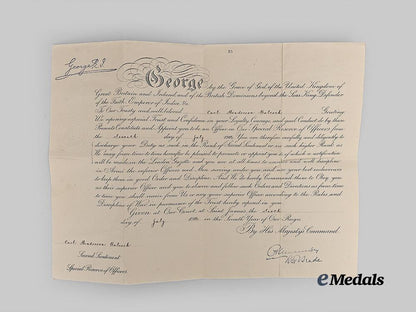 George R.I.
George by the Grace of God of the United Kingdom of
Great Britain and Ireland and of the British Dominions beyond the Seas King, Defender
of the Faith, Emperor of India, &c.
To Our Trusty and well beloved Greeting
We, reposing especial Trust and Confidence in your Loyalty, Courage, and good Conduct do by these
Presents Constitute and Appoint you to be an Officer in Our Special Reserve of Officers from
the day of July You are therefore carefully and diligently to
discharge your Duty as such in the Rank of Second Lieutenant or in such higher Rank as
We may from time to time hereafter be pleased to promote or appoint you to of which a notification
will be made in the London Gazette and you are at all times to exercise and well discipline
in Arms the inferior Officers and Men serving under you and use your best endeavours
to keep them in good Order and Discipline. And We do hereby Command them to Obey you
as their superior Officer and you to observe and follow such Orders and Directions as from time
to time you shall receive from Us or any your superior Officer according to the Rules and
Discipline of War in pursuance of the Trust hereby reposed in you.
Given at Our Court, at Saint James's the sixth
day of July in the Seventh Year of Our Reign
By His Majesty's Command.
Second Lieutenant
Special Reserve of Officers
eMedals